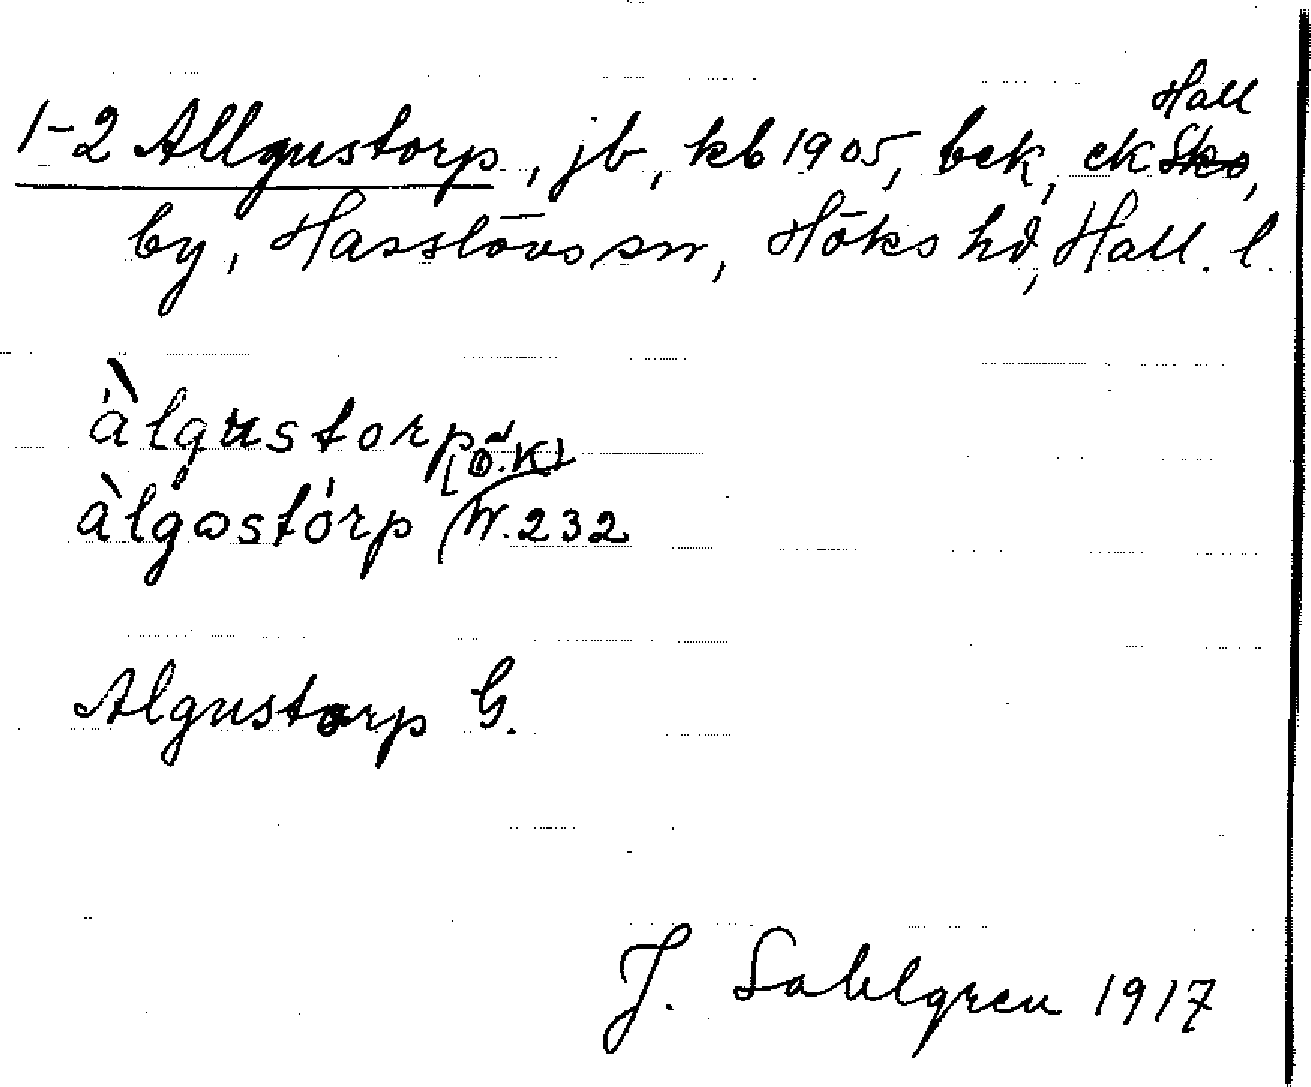 1-2 Allgustorp, jb, kb 1905, bek, ek Hall
by, Hasslövs sn, Höks hd, Hall. l.
àlgustorp
àlgostórp (W. 232
Algustorp G.
J. Sahlgren 1917